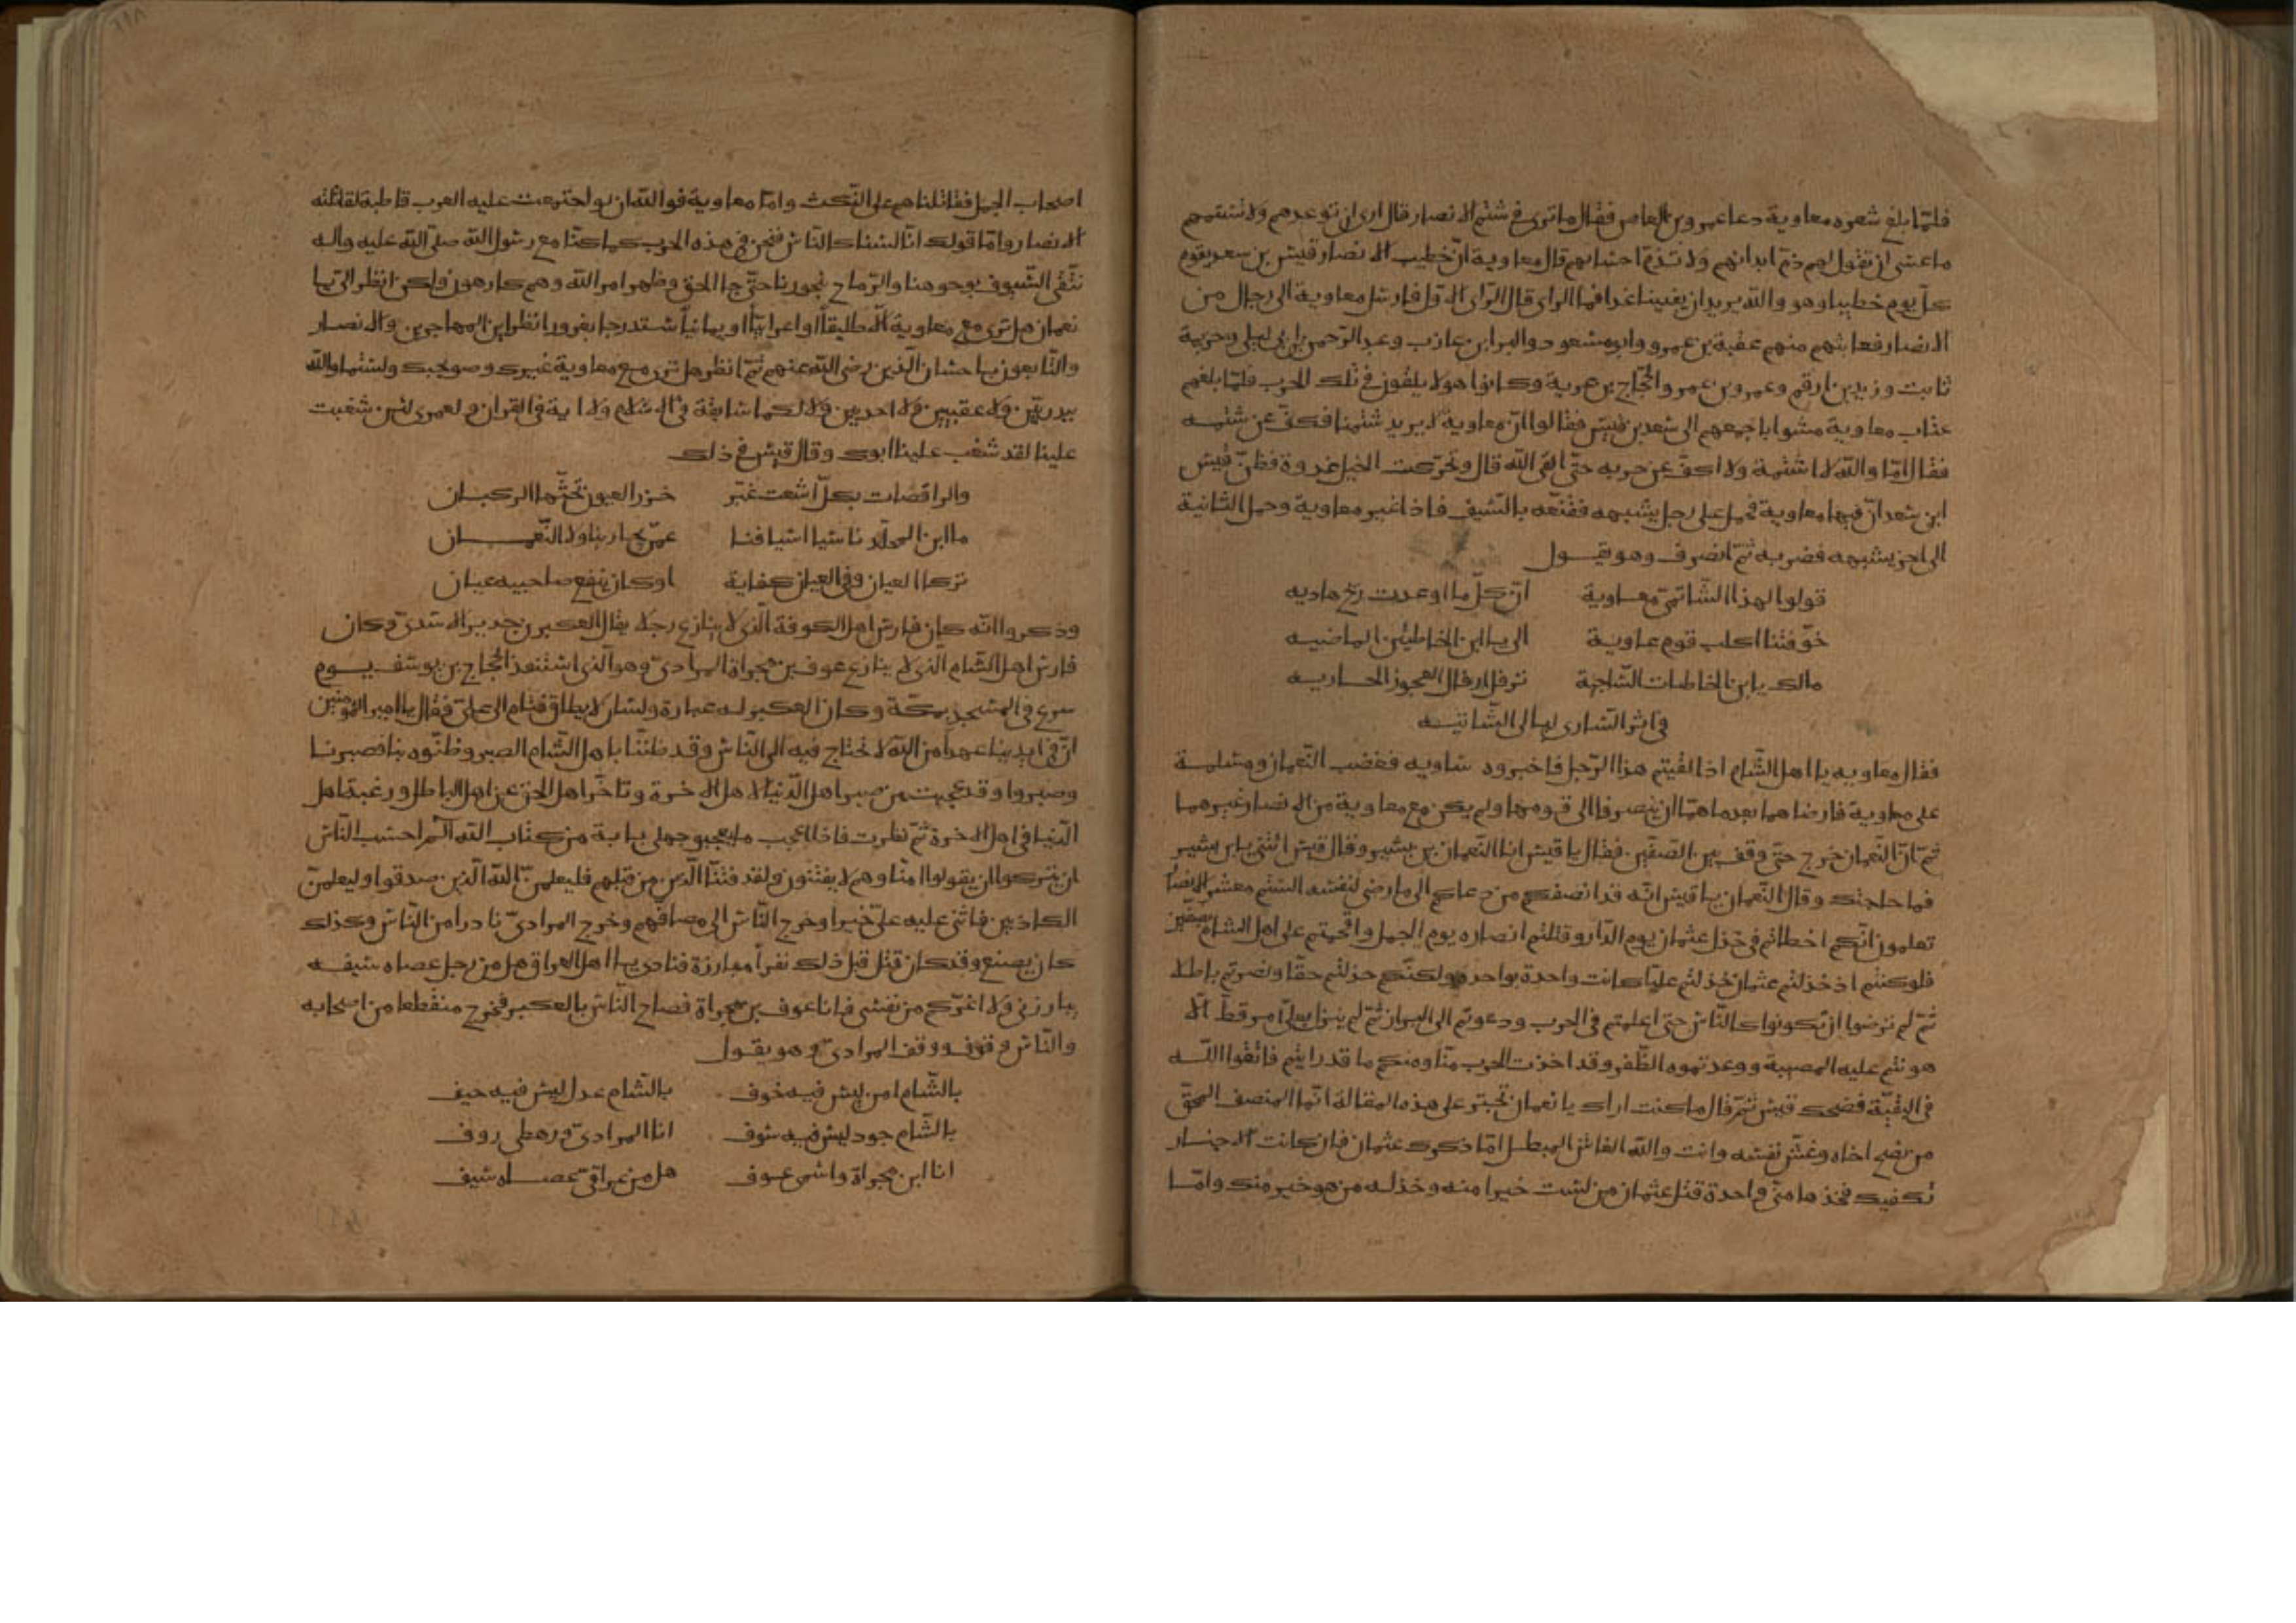 فلمّا بلغ شعره معاوية دعا عمرو بن العاص فقال ما ترى في شتم الانصار قال ارى ان توعدهم ولا تشتمهم
ما عسى ان تقول لهم ذمّ ابدانهم ولا تذمّ احسابهم قال معاوية انّ خطيب الانصار قيس بن سعد يقوم
كلّ يوم خطيبا وهو والله يريد ان يفنينا غدا فما الراى قال الرّاى الاول فارسل معاوية الى رجال من
الانصار فعاتبهم منهم عقبة بن عمرو وابو مسعود والبرا ابن عازب وعبد الرّحمن بن ابى ليلى وخزيمة
ثابت وزيد بن ارقم وعمرو بن عمرو والحجّاج بن غزية وكانوا هولا يلقون في تلك الحرب فلمّا بلغهم
عتاب معاوية مشوا باجمعهم الى سعد بن قيس فقالوا انّ معاوية لا يريد شتمنا فكفّ عن شتمه
فقال امّا والله لا اشتمه ولا اكفّ عن حربه حتّى القى الله قال وتحرّكت الخيل غدوة فظنّ قيس
ابن سعد انّ فيها معاوية فحمل على رجل يشبهه فقنّعه بالسّيف فاذا غير معاوية وحمل الثانية
الى اخر يشبهه فضربه ثمّ انصرف وهو يقول
قولوا لهذا الشّاتمىّ معاوية انّ كلّ ما اوعدت ريح هاديه
خوّفتنا اكلب قوم عاوية الى يا ابن الخاطئين الماضيه
مالك يا بن الخاطيات السّاجية ترفل ارفال العجوز الحاريه
فى اثر السّارى ليالى الشّاتيه
فقال معاويه يا اهل الشّام اذا لقيتم هذا الرّجل فاخبروه مساويه فغضب النّعمان ومسلمة
على معاوية فارضاهما بعد ما همّا ان ينصرفا الى قومهما ولم يكن مع معاوية من الانصار غيرهما
ثمّ انّ النّعمان خرج حتّى وقف بين الصّفّين فقال يا قيس انا النّعمان بن بشير وقال قيس انتى يا بن بشير
فما حاجتك وقال النّعمان يا قيس انّه قد انصفكم من دعاكم الى ما رضى لنفسه الستم معشر الانصار
تعلمون انّكم اخطاتم في خذل عثمان يوم الدّار وقتلتم انصاره يوم الجمل واقحمتم على اهل الشام بصفّين
فلو كنتم اذ خذلتم عثمان خذلتم عليّا كانت واحدة بواحد ولكنّكم خذلتم حقّا ونصرتم باطلا
ثمّ لم ترضوا ان تكونوا كالنّاس حتى اعلمتم في الحرب ودعوتم الى البراز ثمّ لم ينزل بعلىّ امر قطّ الّا
هونتم عليه المصيبة ووعدتموه الظّفر وقد اخذت الحرب منّا ومنكم ما قد رايتم فاتّقوا اللّه
في البقيّة فضحك قيس ثمّ قال ما كنت اراك يا نعمان تجتر على هذه المقالة انّما المنصف المحقّ
من نصح اخاه وغشّ نفسه وانت والله الغاش المبطل امّا ذكرك عثمان فان كانت الاخبار
تكفيك فخذها منّى واحدة قتل عثمان من لست خيرا منه وخذله من هو خير منك وامّا
اصحاب الجمل فقاتلناهم على النّكث وامّا معاوية فوالله ان لو اجتمعت عليه العرب قاطبة لقاتلته
الانصار وامّا قولك انّا لسنا كالنّاس فنحن في هذه الحرب كما كنّا مع رسول الله صلّى الله عليه واله
نتّقى السّيوف بوجوهنا والرّماح بنحورنا حتّى جا الحق وظهر امر الله وهم كارهون ولكن انظر الى يا
نعمان هل ترى مع معاوية الّا طليقاً او اعرابيّاً او يمانياً مستدرجا بغرور انظر اين المهاجرين والانصار
والتّابعون باحسان الّذين رضى الله عنهم ثمّ انظر هل ترى مع معاوية غيرك وصويحبك ولستما والله
ببدريّين ولا عقبيين ولا احديين ولا لكما سابقة في الاسلام ولا اية في القران ولعمرى لئن شغبت
علينا لقد شغب علينا ابوك وقال قيس في ذلك
والراقصات بكلّ اشعث غبّر خزر العيون تحثّها الركبان
ما ابن المخلّد ناسيا اسيافنا عمّن يحاربنا ولا النّعمان
تركا العيان وفى العيان كفاية او كان ينفع صاحبيه عيان
وذكروا انّه كان فارس اهل الكوفة الّذى لا ينازع رجلا يقال العكبر بن جدير الاسدىّ وكان
فارس اهل الشّام الذى لا ينازع عوف بن مجزاة المرادىّ وهو الّذى استنقذ الحجّاج بن يوسف يوم
صرع في المسجد بمكّة وكان العكبر له عبارة ولسان لا يطاق فقام الى علىّ فقال يا امير المؤمنين
انّ في ايدينا عهدا من الله لا نحتاج فيه الى النّاس وقد ظننّا باهل الشّام الصبر وظنّوه بنا فصبرنا
وصبروا وقد عجبت من صبر اهل الدّنيا لاهل الاخرة وتاخّر اهل الحق عن اهل الباطل ورغبة اهل
الدّنيا في اهل الاخرة ثمّ نظرت فاذا اعجب ما يعجبو جهلى باية من كتاب الله الم احسب النّاس
ان يتركوا ان يقولوا امنّا وهم لا يفتنون ولقد فتنّا الّذين من قبلهم فليعلمنّ الله الّذين صدقوا وليعلمنّ
الكاذبين فاثنى عليه علىّ خيرا وخرج النّاس الى مصافّهم وخرج المرادىّ نادرا من النّاس وكذلك
كان يصنع وقد كان قتل قبل ذلك نفرا مبارزة فنادى يا اهل العراق هل من رجل عصاه سيفه
يبارزنى ولا اغرّكم من نفسى فانا عوف بن مجزاة فصاح النّاس بالعكبر فخرج منقطعا من اصحابه
والنّاس وقوف ووقف المرادىّ وهو يقول
بالشّام امن ليس فيه خوف بالشّام عدل ليس فيه حيف
بالشّام جود ليس فيه سوف انا المرادىّ ورهطى روف
انا ابن مجزاة واسمى عوف هل من عراقىّ عصاه سيف